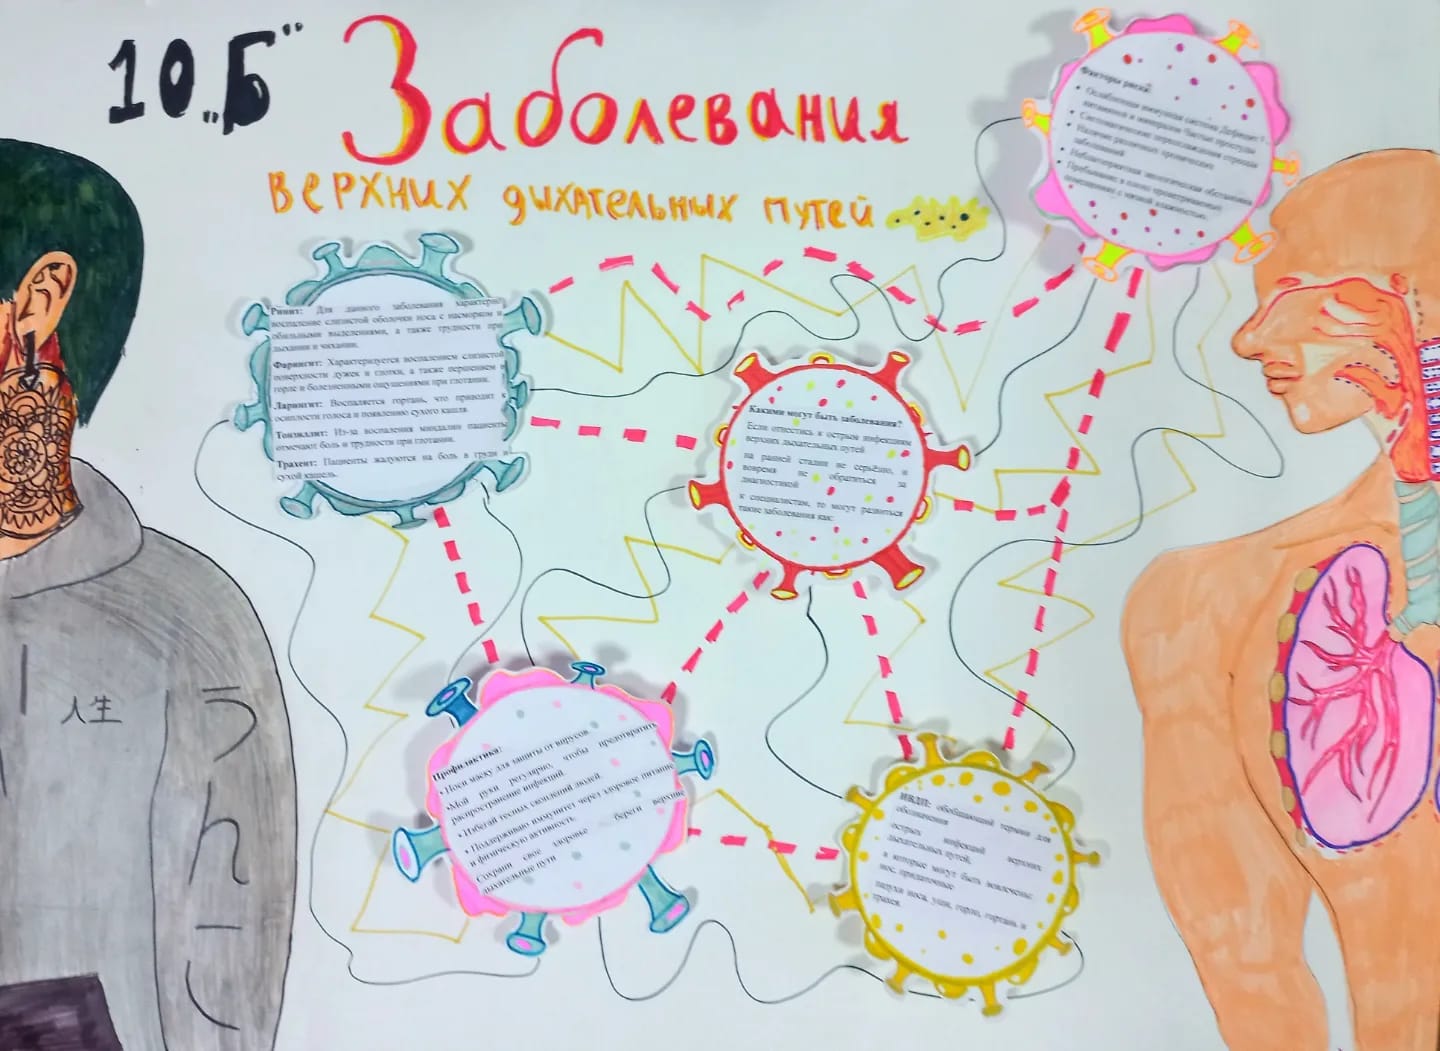 10 „Б"
Заболевания
верхних дыхательных путей
Факторы риска:
• Ослабленная иммунная система Дефицит
витаминов и минералов Частые простуды
• Систематические переохлаждения
• Наличие различных хронических
заболеваний
• Неблагоприятная экологическая обстановка
• Пребывание в плохо проветриваемых
помещениях с низкой влажностью.
Ринит: Для данного заболевания характерно
воспаление слизистой оболочки носа с насморком и
обильными выделениями, а также трудности при
дыхании и чихании.
Фарингит: Характеризуется воспалением слизистой
поверхности дужек и глотки, а также першением в
горле и болезненными ощущениями при глотании.
Ларингит: Воспаляется гортань, что приводит к
осиплости голоса и появлению сухого кашля.
Тонзиллит: Из-за воспаления миндалин пациенты
отмечают боль и трудности при глотании.
Трахеит: Пациенты жалуются на боль в груди и
сухой кашель.
Какими могут быть заболевания?
Если отнестись к острым инфекциям
верхних дыхательных путей
на ранней стадии не серьёзно, и
вовремя не обратиться за
диагностикой
к специалистам, то могут развиться
такие заболевания как:
Профилактика:
• Носи маску для защиты от вирусов
•Мой руки регулярно, чтобы предотвратить
распространение инфекций.
• Избегай тесных скоплений людей.
• Поддерживаю иммунитет через здоровое питание
и физическую активность.
Сохрани свое здоровье береги верхние
дыхательные пути
ИВДП: обобщающий термин для
обозначения
острых инфекций верхних
дыхательных путей,
в которые могут быть вовлечены:
нос, придаточные
пазухи носа, уши, горло, гортань и
трахея.
人生
うんこ